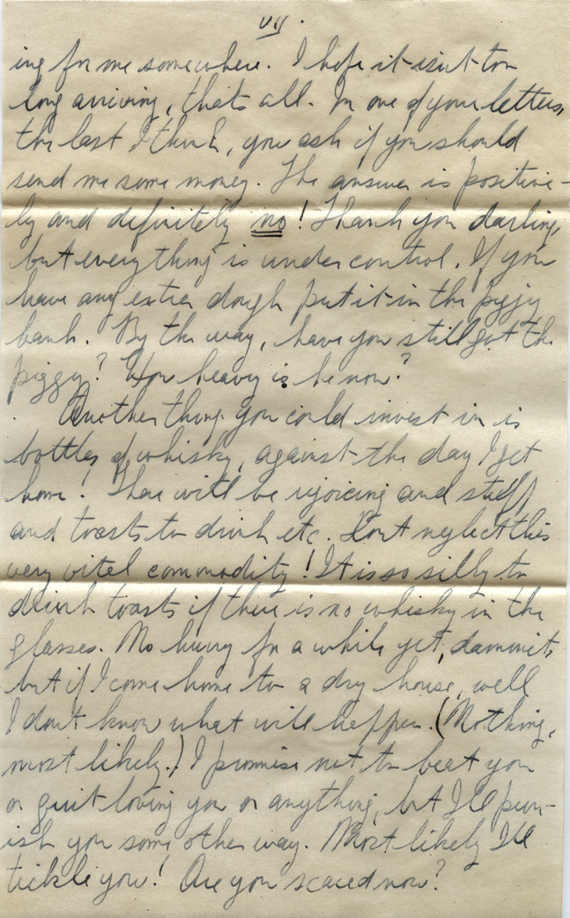 VII.
ing for me somewhere. I hope it isn't too
long arriving, thats all. In one of your letters,
the last I think, you ask if you should
send me some money. The answer is positive-
ly and definitely no! Thank you darling,
but everything is under control. If you
have any extra dough put it in the piggy
bank. By the way, have you still got the
piggy? How heavy is he now?
Another thing you could invest in is
bottles of whisky, against the day I get
home! There will be rejoicing and stuff
and toasts to drink etc. Dont neglect this
very vital commodity! It is so silly to
drink toasts if there is no whisky in the
glasses. No hurry for a while yet, dammit,
but if I come home to a dry house, well
I dont know what will happen. (Nothing,
most likely.) I promise not to beat you
or quit loving you or anything, but I'll pun-
ish you some other way. Most likely I'll
tickle you! Are you scared now?